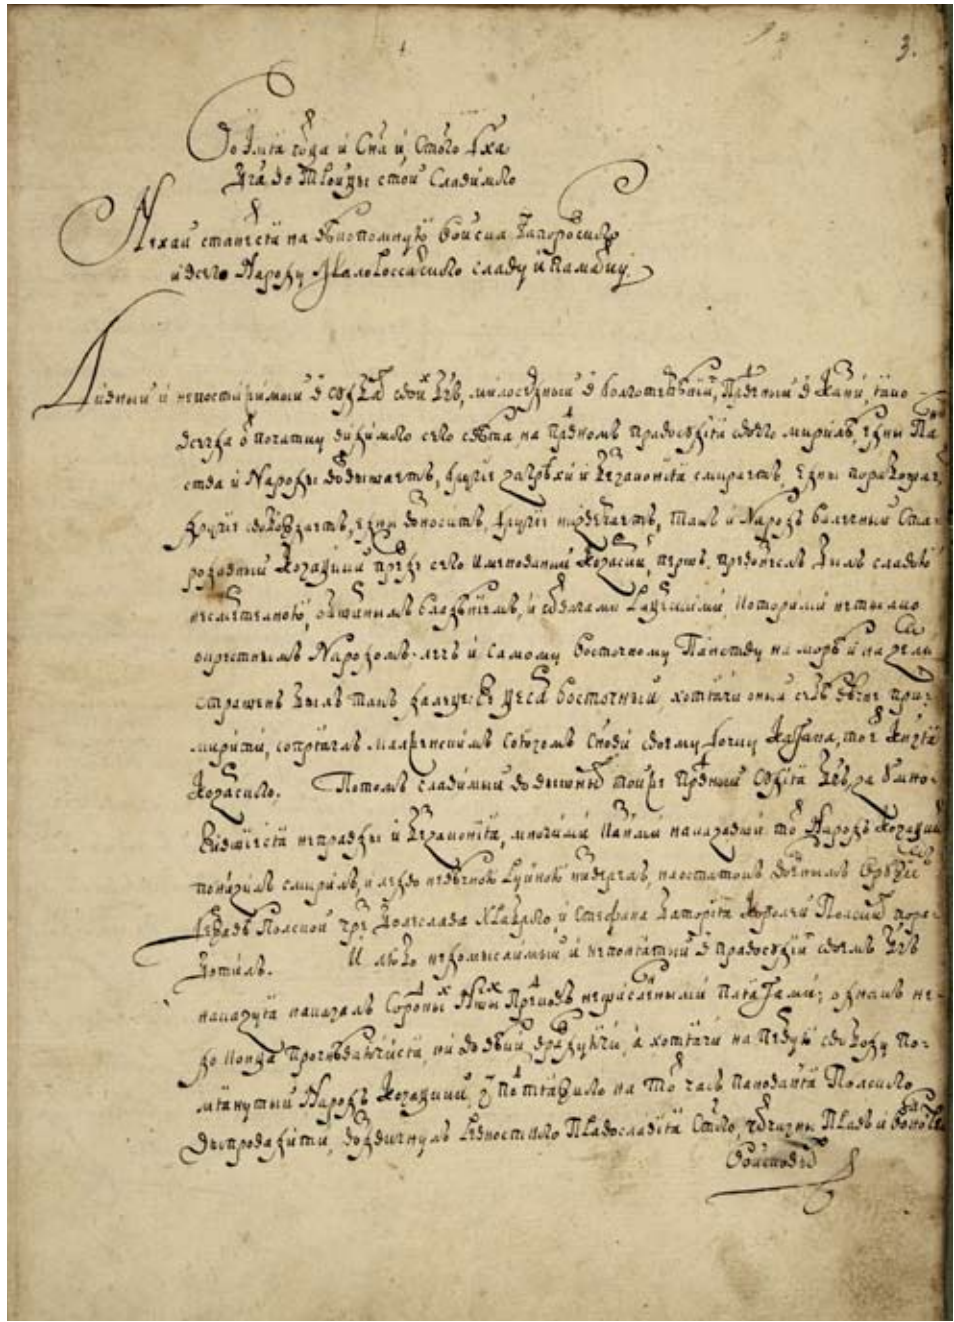 Во Імя Оца и Сна и, Стого Дха
Бга во Троицы стой Славимого
Нехай станется на вѣчнопомную Войска Запорозкого
и всего Народу Малороссійского славу и памятку.
Дивный и непостижимый в судбах свои Бгъ, милосердный в долготерпѣнїи, Праведный в Казни, яко
всегда ѿ початку видимого сего свѣта, на праведномъ правосудїя своего мирилѣ, едны Пан
ства и Народы возвышаетъ, другіе за грѣхи и Беззаконїя смиряетъ, едны порабощает,
другіе свобождаетъ, едны возноситъ, другіе низвергаетъ, такъ и Народъ валечный Ста-
родавный Козацкий прежде сего именованый Козарский, першъ превознеслъ былъ славою
несмертелною, обширнымъ владѣнїемъ, и отвагами Рицерскими, которими нетылко
окрестнымъ Народомъ, лечъ и самому Восточному Панству на морѣ и на земли
страшенъ былъ такъ далеце же Цесар Восточный, хотячи оный себѣ вѣчне при-
мирити, сопряглъ малженскимъ союзомъ Снови своему дочку Кагана, то е Князя
Козарского. Потомъ славимый во вышних тойже праведный Судїя Бгъ, за умно-
жившїеся неправды и Беззаконїя, многими казнми наказавши той Народъ Козацкий
понизилъ, смирилъ, и ледво невѣчною Руиною низверглъ, наостатокъ военнымъ Оружіем
державѣ Полской чрез Болеслава Храброго, и Стефана Баторїя Королей Полских пора-
ботилъ. И любо недомыслимый и непонятый в правосудїи своемъ Бгъ
наказуя наказалъ нешчисленными плягами; однакъ не-
до конца прогнѣваючися, ни во вѣки враждуючи, а хотячи на первую свободу по-
мянутый Народъ Козацкий, з под тяжкого на той часъ панованя Полского
випровадити, воздвигнулъ ревностного Православїя Стого, отчизны Правъ и волностей
Войсковых